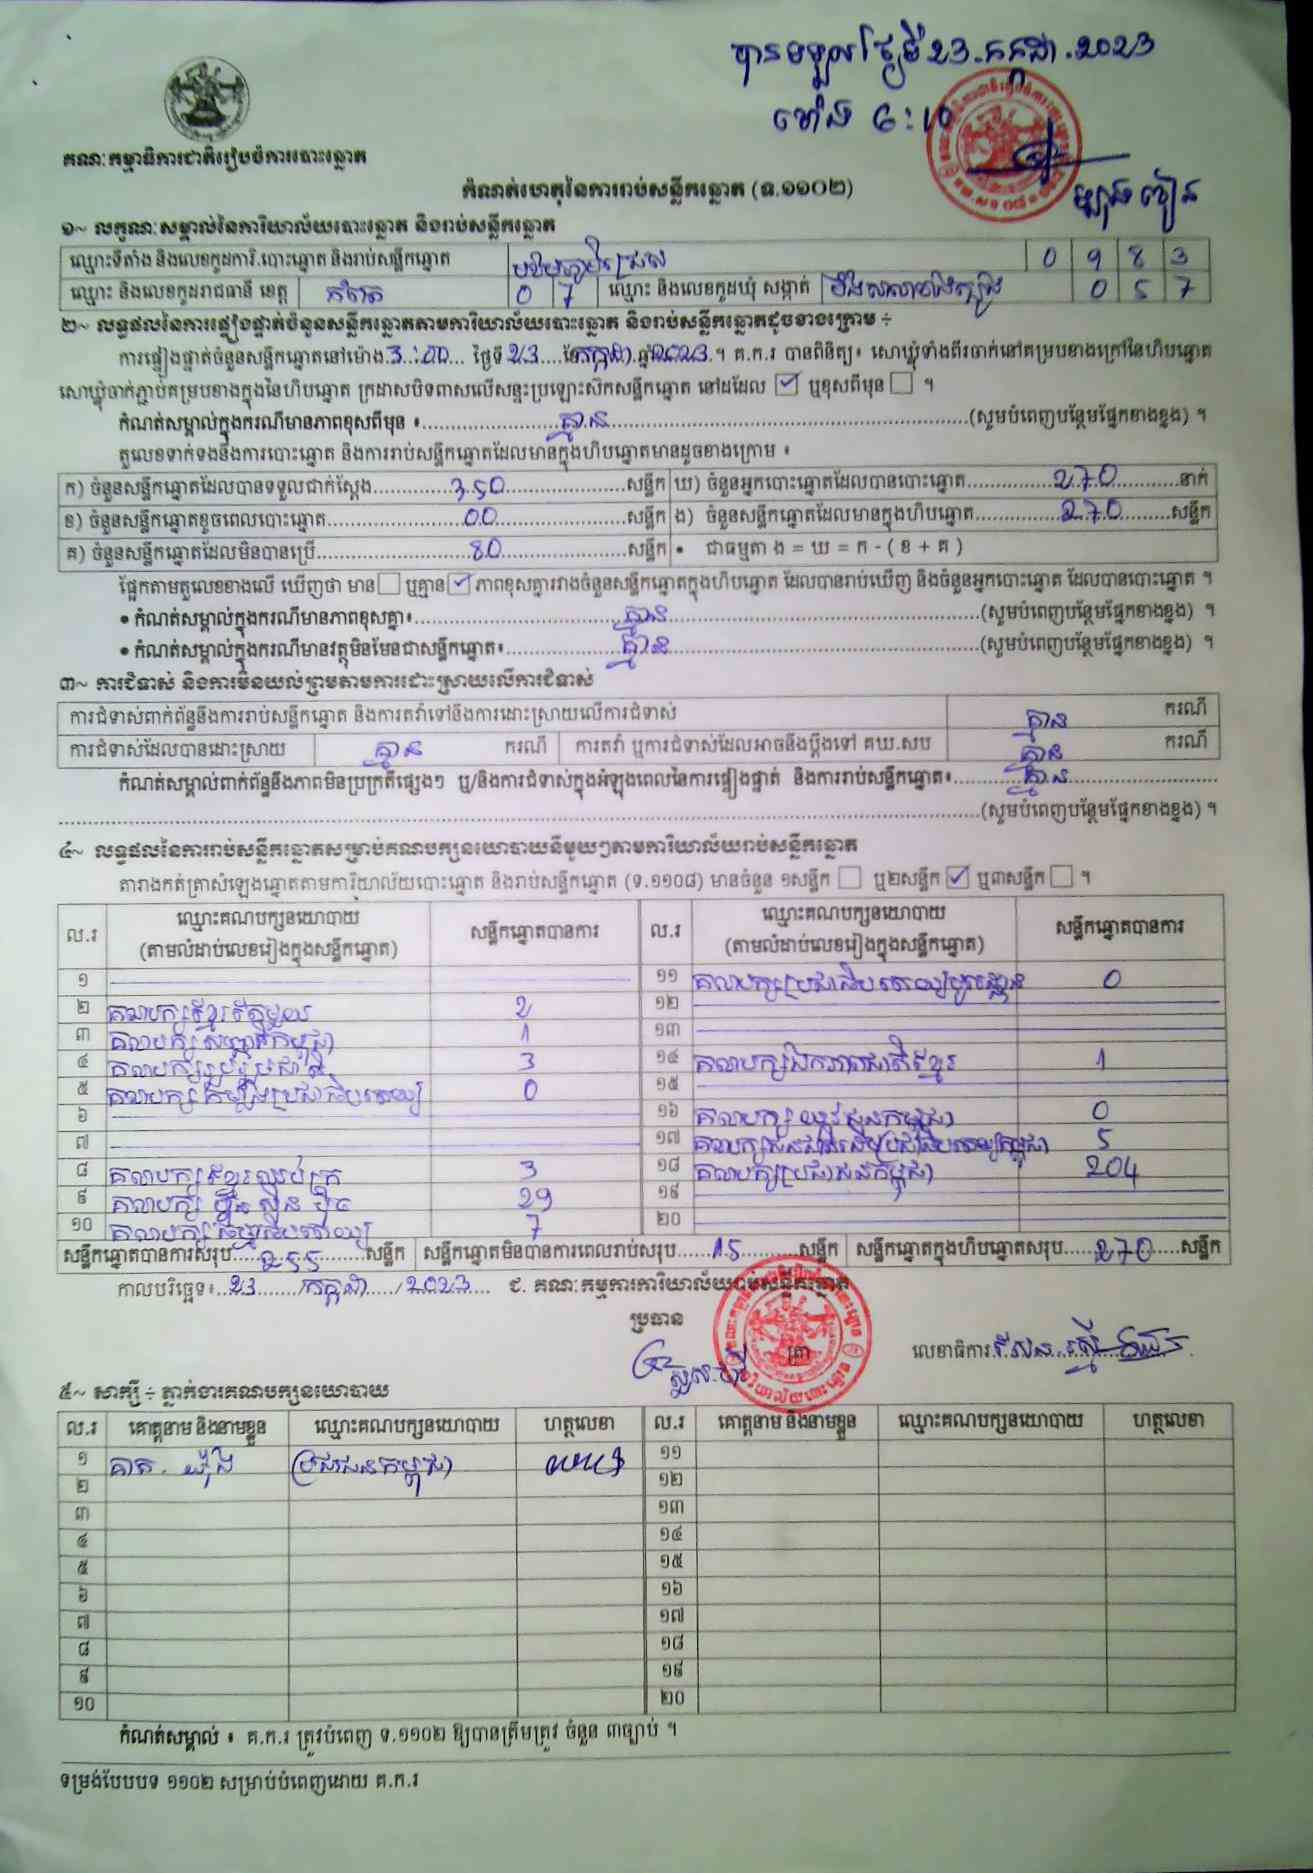 បានទទួល ថ្ងៃទី 23.កក្កដា.2023
ម៉ោង 6:10
គណៈកម្មាធិការជាតិរៀបចំការបោះឆ្នោត
កំណត់ហេតុនៃការរាប់សន្លឹកឆ្នោត (ទ.១១០២)
១~ លក្ខណៈសម្គាល់នៃការិយាល័យបោះឆ្នោត និងរាប់សន្លឹកឆ្នោត
ឈ្មោះទីតាំង និងលេខកូដការិ.បោះឆ្នោត និងរាប់សន្លឹកឆ្នោត 0 9 8 3
ឈ្មោះ និងលេខកូដរាជធានី ខេត្ត កំពត 0 7 ឈ្មោះ និងលេខកូដឃុំ សង្កាត់ 0 5 7
២~ លទ្ធផលនៃការផ្ទៀងផ្ទាត់ចំនួនសន្លឹកឆ្នោតតាមការិយាល័យបោះឆ្នោត និងរាប់សន្លឹកឆ្នោតដូចខាងក្រោម ÷
ការផ្ទៀងផ្ទាត់ចំនួនសន្លឹកឆ្នោតនៅម៉ោង 3:00 ថ្ងៃទី 23 ខែ កក្កដា ឆ្នាំ 2023 ។ គ.ក.រ បានពិនិត្យ៖ សោឃ្លុំទាំងពីរចាក់នៅគម្របខាងក្រៅនៃហិបឆ្នោត
សោឃ្លុំចាក់ភ្ជាប់គម្របខាងក្នុងនៃហិបឆ្នោត ក្រដាសបិទពាសលើសន្ទះប្រឡោះសិកសន្លឹកឆ្នោត នៅដដែល ☑ ឬខុសពីមុន ☐ ។
កំណត់សម្គាល់ក្នុងករណីមានភាពខុសពីមុន ៖ គ្មាន (សូមបំពេញបន្ថែមផ្នែកខាងខ្នង) ។
តួលេខទាក់ទងនឹងការបោះឆ្នោត និងការរាប់សន្លឹកឆ្នោតដែលមានក្នុងហិបឆ្នោតមានដូចខាងក្រោម ៖
ក) ចំនួនសន្លឹកឆ្នោតដែលបានទទួលជាក់ស្ដែង 350 សន្លឹក ឃ) ចំនួនអ្នកបោះឆ្នោតដែលបានបោះឆ្នោត 270 នាក់
ខ) ចំនួនសន្លឹកឆ្នោតខូចពេលបោះឆ្នោត 00 សន្លឹក ង) ចំនួនសន្លឹកឆ្នោតដែលមានក្នុងហិបឆ្នោត 270 សន្លឹក
គ) ចំនួនសន្លឹកឆ្នោតដែលមិនបានប្រើ 80 សន្លឹក • ជាធម្មតា ង = ឃ = ក - ( ខ + គ )
ផ្អែកតាមតួលេខខាងលើ ឃើញថា មាន ☐ ឬគ្មាន ☑ ភាពខុសគ្នារវាងចំនួនសន្លឹកឆ្នោតក្នុងហិបឆ្នោត ដែលបានរាប់ឃើញ និងចំនួនអ្នកបោះឆ្នោត ដែលបានបោះឆ្នោត ។
• កំណត់សម្គាល់ក្នុងករណីមានភាពខុសគ្នា៖ គ្មាន (សូមបំពេញបន្ថែមផ្នែកខាងខ្នង) ។
• កំណត់សម្គាល់ក្នុងករណីមានវត្ថុមិនមែនជាសន្លឹកឆ្នោត៖ គ្មាន (សូមបំពេញបន្ថែមផ្នែកខាងខ្នង) ។
៣~ ការជំទាស់ និងការមិនយល់ព្រមតាមការដោះស្រាយលើការជំទាស់
ការជំទាស់ពាក់ព័ន្ធនឹងការរាប់សន្លឹកឆ្នោត និងការតវ៉ាទៅនឹងការដោះស្រាយលើការជំទាស់ គ្មាន ករណី
ការជំទាស់ដែលបានដោះស្រាយ គ្មាន ករណី ការតវ៉ា ឬការជំទាស់ដែលអាចនឹងប្ដឹងទៅ គឃ.សប គ្មាន ករណី
កំណត់សម្គាល់ពាក់ព័ន្ធនឹងភាពមិនប្រក្រតីផ្សេងៗ ឬ/និងការជំទាស់ក្នុងអំឡុងពេលនៃការផ្ទៀងផ្ទាត់ និងការរាប់សន្លឹកឆ្នោត៖ គ្មាន
(សូមបំពេញបន្ថែមផ្នែកខាងខ្នង) ។
៤~ លទ្ធផលនៃការរាប់សន្លឹកឆ្នោតសម្រាប់គណបក្សនយោបាយនីមួយៗតាមការិយាល័យរាប់សន្លឹកឆ្នោត
តារាងកត់ត្រាសំឡេងឆ្នោតតាមការិយាល័យបោះឆ្នោត និងរាប់សន្លឹកឆ្នោត (ទ.១១០៨) មានចំនួន ១សន្លឹក ☐ ឬ២សន្លឹក ☑ ឬ៣សន្លឹក ☐ ។
ល.រ ឈ្មោះគណបក្សនយោបាយ (តាមលំដាប់លេខរៀងក្នុងសន្លឹកឆ្នោត) សន្លឹកឆ្នោតបានការ ល.រ ឈ្មោះគណបក្សនយោបាយ (តាមលំដាប់លេខរៀងក្នុងសន្លឹកឆ្នោត) សន្លឹកឆ្នោតបានការ
១ ១១ គណបក្សប្រជាធិបតេយ្យមូលដ្ឋាន 0
២ គណបក្សខ្មែររួបរួម 2 ១២
៣ គណបក្សសញ្ជាតិកម្ពុជា 1 ១៣
៤ គណបក្សរួបរួមជាតិ 3 ១៤ គណបក្សឯកភាពជាតិខ្មែរ 1
៥ គណបក្សសំបុកឃ្មុំប្រជាធិបតេយ្យ 0 ១៥
៦ ១៦ គណបក្សយុវជនកម្ពុជា 0
៧ ១៧ គណបក្សជនជាតិដើមប្រជាធិបតេយ្យកម្ពុជា 5
៨ គណបក្សខ្មែរឈប់ក្រ 3 ១៨ គណបក្សប្រជាជនកម្ពុជា 204
៩ គណបក្សហ៊្វុនស៊ិនប៉ិច 29 ១៩
១០ គណបក្សធម្មាធិបតេយ្យ 7 ២០
សន្លឹកឆ្នោតបានការសរុប 255 សន្លឹក សន្លឹកឆ្នោតមិនបានការពេលរាប់សរុប 15 សន្លឹក សន្លឹកឆ្នោតក្នុងហិបឆ្នោតសរុប 270 សន្លឹក
កាលបរិច្ឆេទ៖ 23 / កក្កដា / 2023 ជ. គណៈកម្មការការិយាល័យរាប់សន្លឹកឆ្នោត
ប្រធាន
ត្រា
លេខាធិការ
៥~ សាក្សី ÷ ភ្នាក់ងារគណបក្សនយោបាយ
ល.រ គោត្តនាម និងនាមខ្លួន ឈ្មោះគណបក្សនយោបាយ ហត្ថលេខា ល.រ គោត្តនាម និងនាមខ្លួន ឈ្មោះគណបក្សនយោបាយ ហត្ថលេខា
១ ប្រជាជនកម្ពុជា ១១
២ ១២
៣ ១៣
៤ ១៤
៥ ១៥
៦ ១៦
៧ ១៧
៨ ១៨
៩ ១៩
១០ ២០
កំណត់សម្គាល់ ៖ គ.ក.រ ត្រូវបំពេញ ទ.១១០២ ឱ្យបានត្រឹមត្រូវ ចំនួន ៣ច្បាប់ ។
ទម្រង់បែបបទ ១១០២ សម្រាប់បំពេញដោយ គ.ក.រ